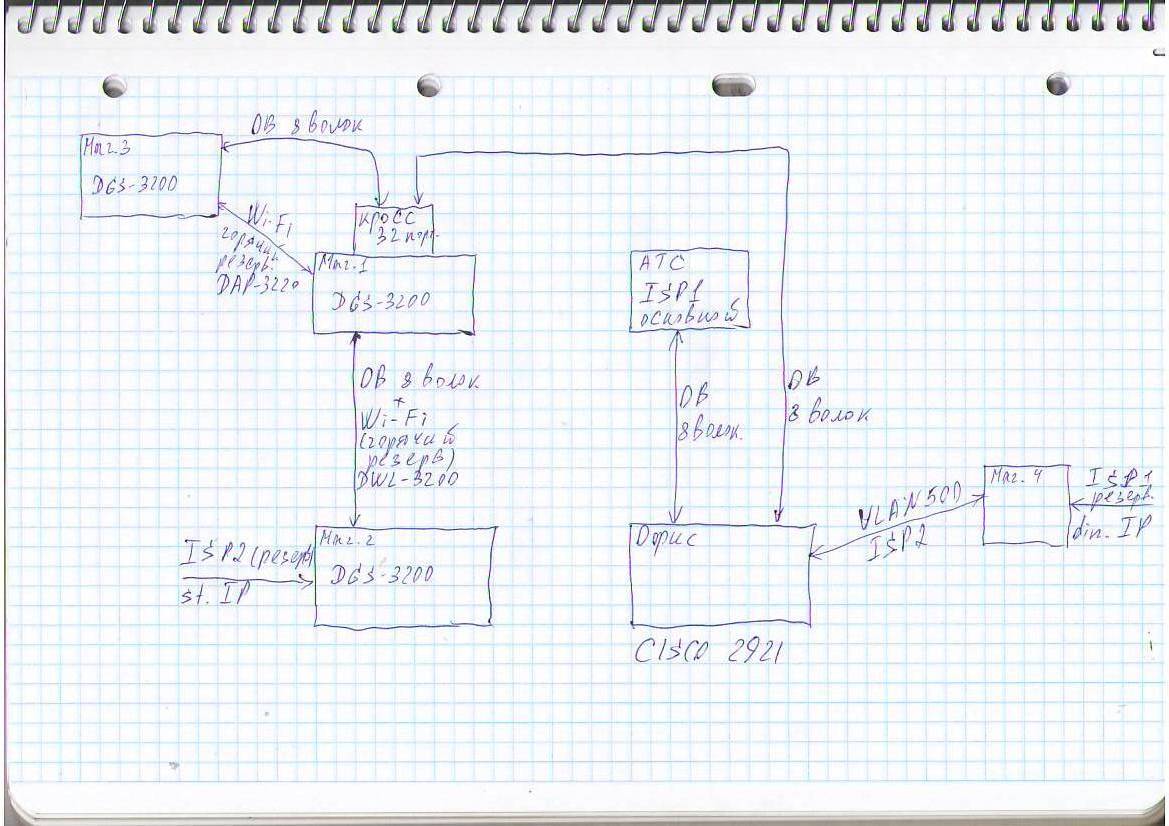 ОВ 8 волок
Маг.3
DGS-3200
Wi-Fi
горячий
резерв.
DAP-3220
кросс
32 порт.
Маг.1
DGS-3200
АТС
ISP1
основной
ОВ 8 волок
+
Wi-Fi
(горячий
резерв)
DWL-3200
ОВ
8 волок.
ОВ
8 волок
Маг. 4
ISP1
резерв.
din. IP
VLAN500
ISP2
ISP2 (резерв)
st. IP
Маг.2
DGS-3200
Офис
CISCO 2921